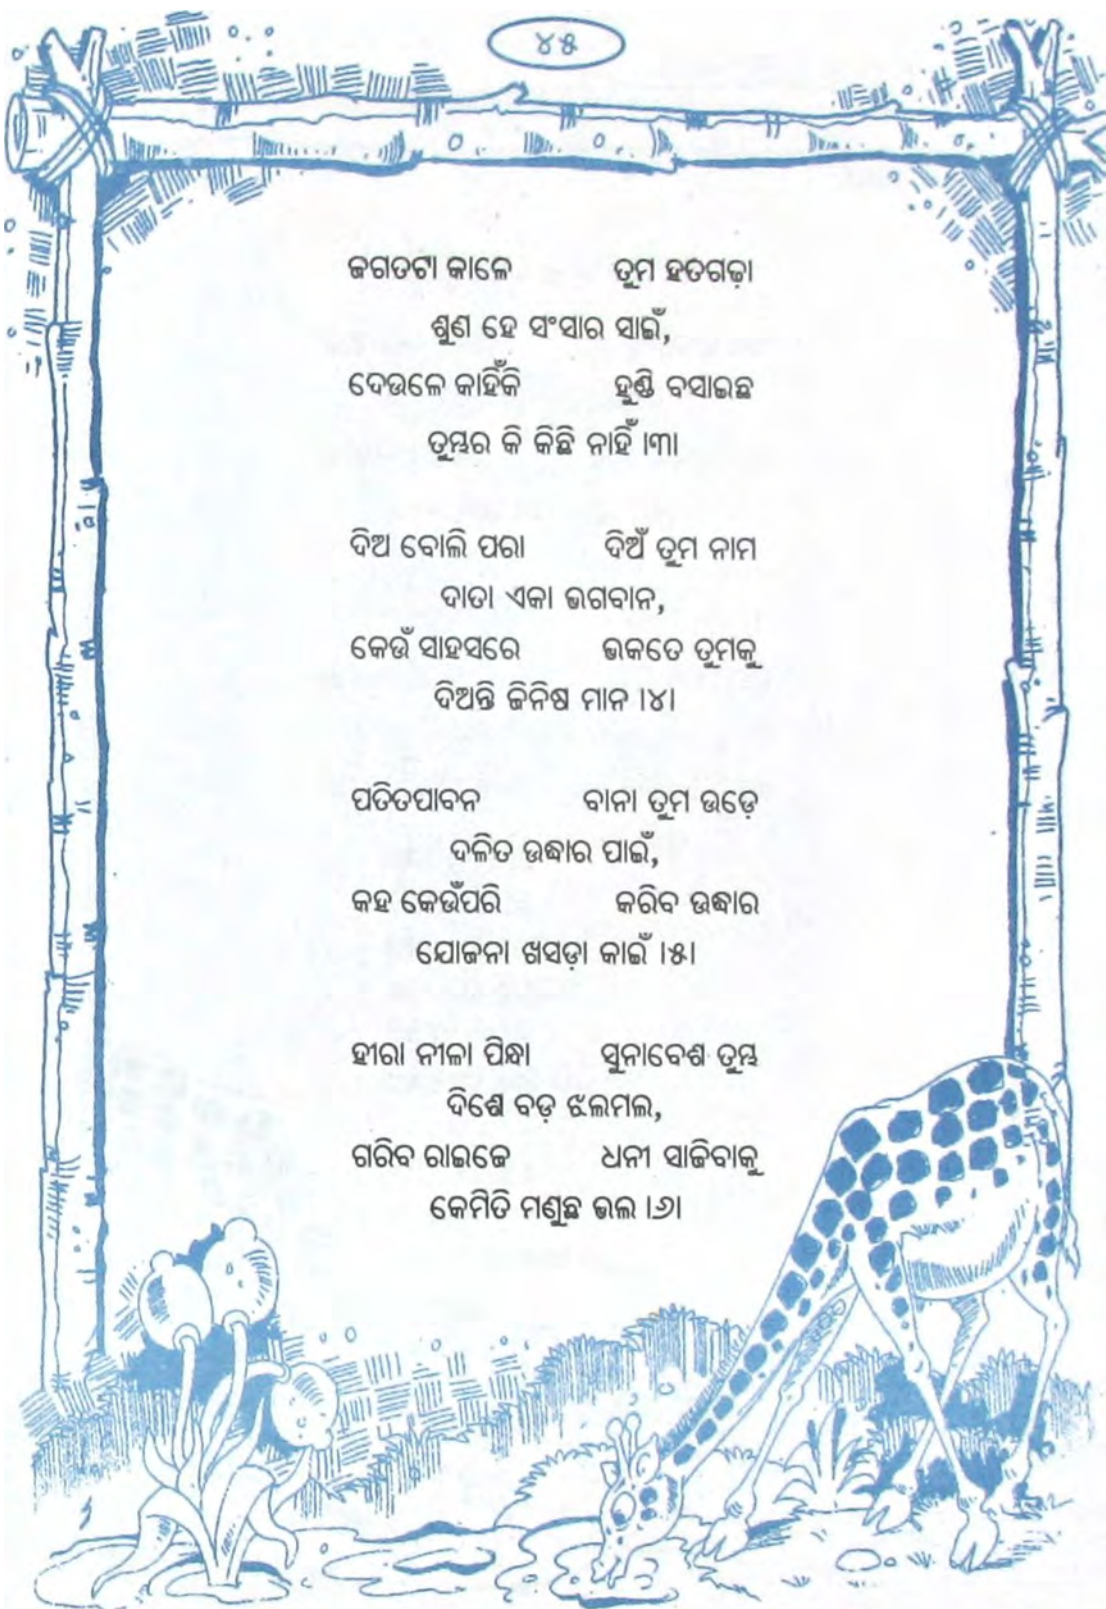 ୪୫
ଜଗତଟା କାଳେ ତୁମ ହତଗଢ଼ା
ଶୁଣ ହେ ସଂସାର ସାଇଁ,
ଦେଉଳେ କାହିଁକି ହୁଣ୍ଡି ବସାଇଛ
ତୁମ୍ଭର କି କିଛି ନାହିଁ ।୩।
ଦିଅ ବୋଲି ପରା ଦିଅଁ ତୁମ ନାମ
ଦାତା ଏକା ଭଗବାନ,
କେଉଁ ସାହସରେ ଭକତେ ତୁମକୁ
ଦିଅନ୍ତି ଜିନିଷ ମାନ ।୪।
ପତିତପାବନ ବାନା ତୁମ ଉଡ଼େ
ଦଳିତ ଉଦ୍ଧାର ପାଇଁ,
କହ କେଉଁପରି କରିବ ଉଦ୍ଧାର
ଯୋଜନା ଖସଡ଼ା କାଇଁ ।୫।
ହୀରା ନୀଳା ପିନ୍ଧା ସୁନାବେଶ ତୁମ୍ଭ
ଦିଶେ ବଡ଼ ଝଲମଲ,
ଗରିବ ରାଇଜେ ଧନୀ ସାଜିବାକୁ
କେମିତି ମଣୁଛ ଭଲ ।୬।